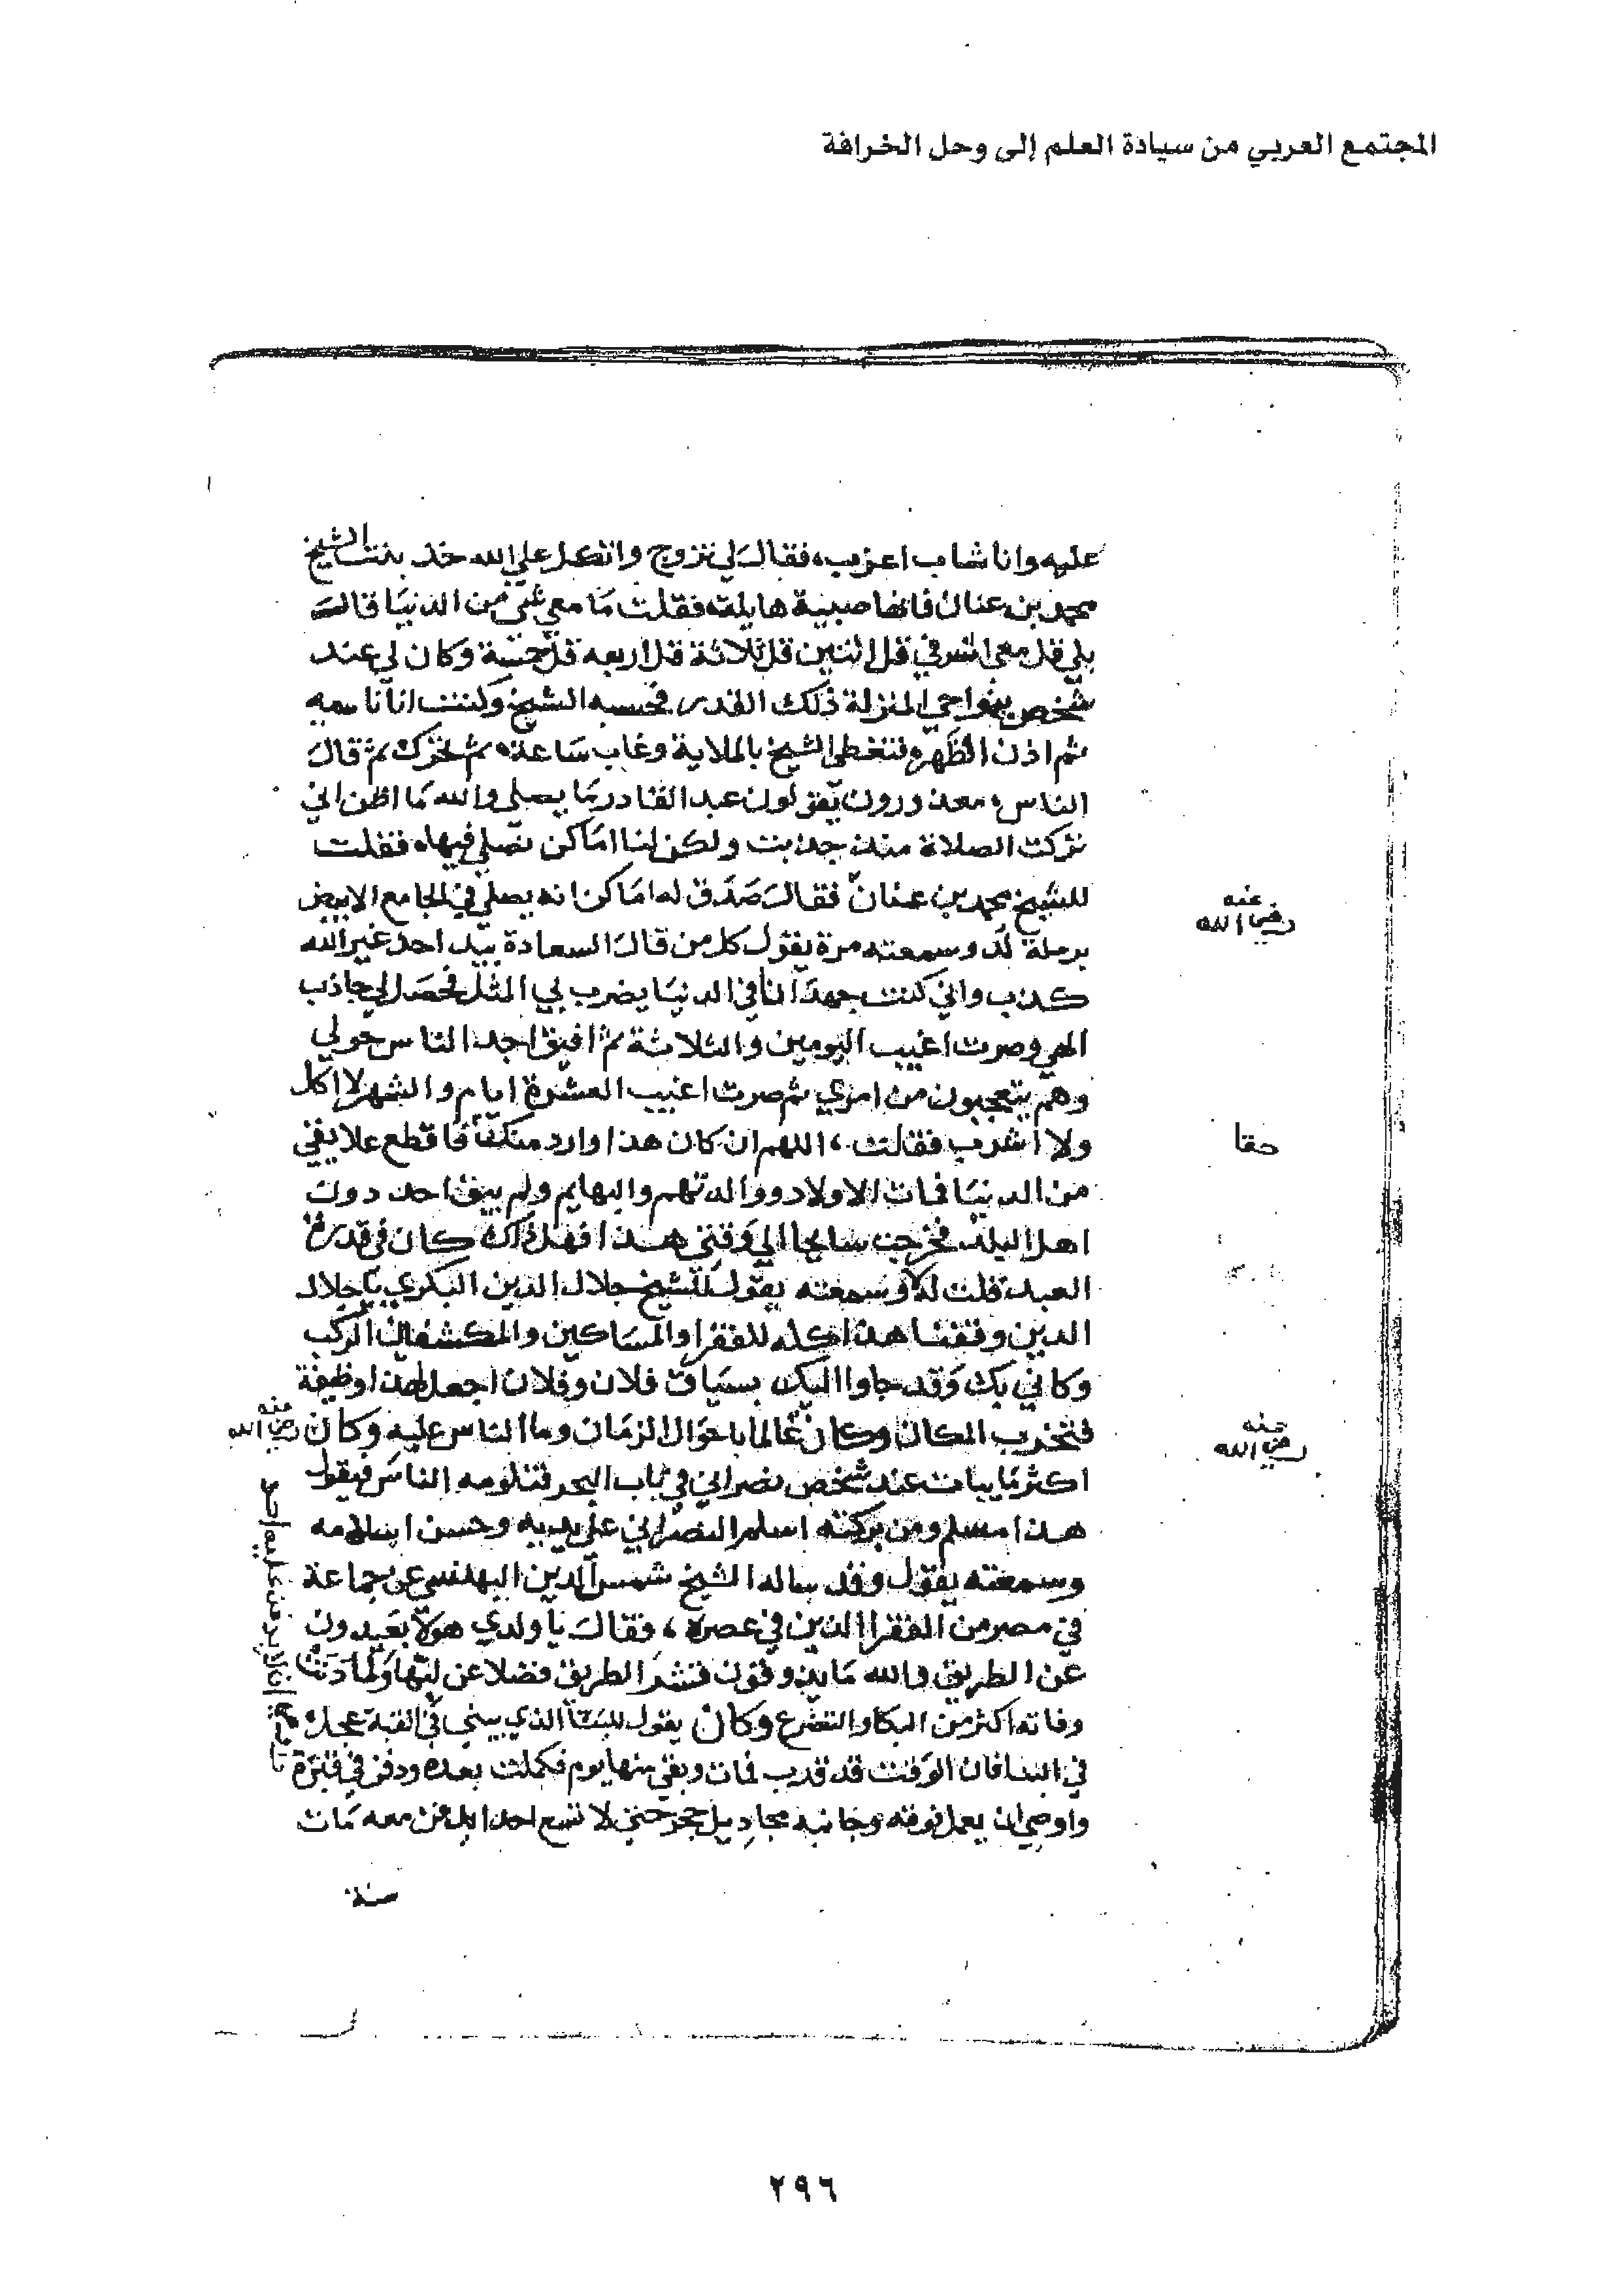 المجتمع العربي من سيادة العلم إلى وحل الخرافة
عليه وانا شاب اعزب، فقال لي تزوج واتكل علي الله خذ بنت الشيخ
محمد بن عنان فانها صبية هايلة فقلت ما معي شي من الدنيا قال
بلي قل معي اشرفي قل اثنين قل ثلاثة قل اربعه قل خمسة وكان لي عند
شخص بنواحي المنزلة ذلك القدر، فحسبه الشيخ وكنت انا ناسيه
ثم اذن الظهر فتغطي الشيخ بالملاية وغاب ساعة ثم تحرك ثم قال
الناس معذورون يقولون عبد القادر ما يصلي والله ما اظن اني
تركت الصلاة منذ جذبت ولكن لنا اماكن نصلي فيها، فقلت
للشيخ محمد بن عنان فقال صدق له اماكن انه يصلي في الجامع الابيض
رضي الله عنه
برملة لد وسمعته مرة يقول كل من قال السعادة بيد احد غير الله
كذب واني كنت جهدا انا في الدنيا يضرب لي المثل فحصل لي جاذب
الهي وصرت اغيب اليومين والثلاثة ثم افيق اجد الناس حولي
وهم يتعجبون من امري ثم صرت اغيب العشرة ايام والشهر لا اكل
ولا اشرب فقلت، اللهم ان كان هذا وارد منك فاقطع علايقي
حقا
من الدنيا فمات الاولاد ووالدتهم والبهايم ولم يبق احد دون
اهل البلد فخرجت سايحا الي وقتي هذا فهل ذاك كان في قدرة
العبد، قلت لا وسمعته يقول للشيخ جلال الدين البكري يا جلال
الدين وقفنا هذا كله للفقرا والمساكين والمكشفين الركب
وكاني بك وقد جاوا اليك بسياق فلان وفلان اجعل لهذا وظيفة
فتخرب المكان وكان عالما باحوال الزمان وما الناس عليه وكان رضي الله عنه
رضي الله عنه
اكثر ما يبات عند شخص نصراني في باب البحر فتلومه الناس فيقول
هذا مسلم ومن بركته اسلم النصراني علي يديه وحسن اسلامه
وسمعته يقول وقد ساله الشيخ شمس الدين البهنسي عن جماعة
في مصر من الفقرا الذين في عصره، فقال يا ولدي هولا بعيدون
عن الطريق والله ما يذوقون قشر الطريق فضلا عن لبها ولما دنت
وفاته اكثر من البكا والتضرع وكان يقول للبنا الذي يبني في القبة عجل
في البنا فان الوقت قد قرب فمات وبقي منها يوم فكملت بعده ودفن في قبره
واوصي ان يعمل فوقه وجانبه مجاديل حجر حتي لا تسع احدا يدفن معه مات
سنة
٢٩٦